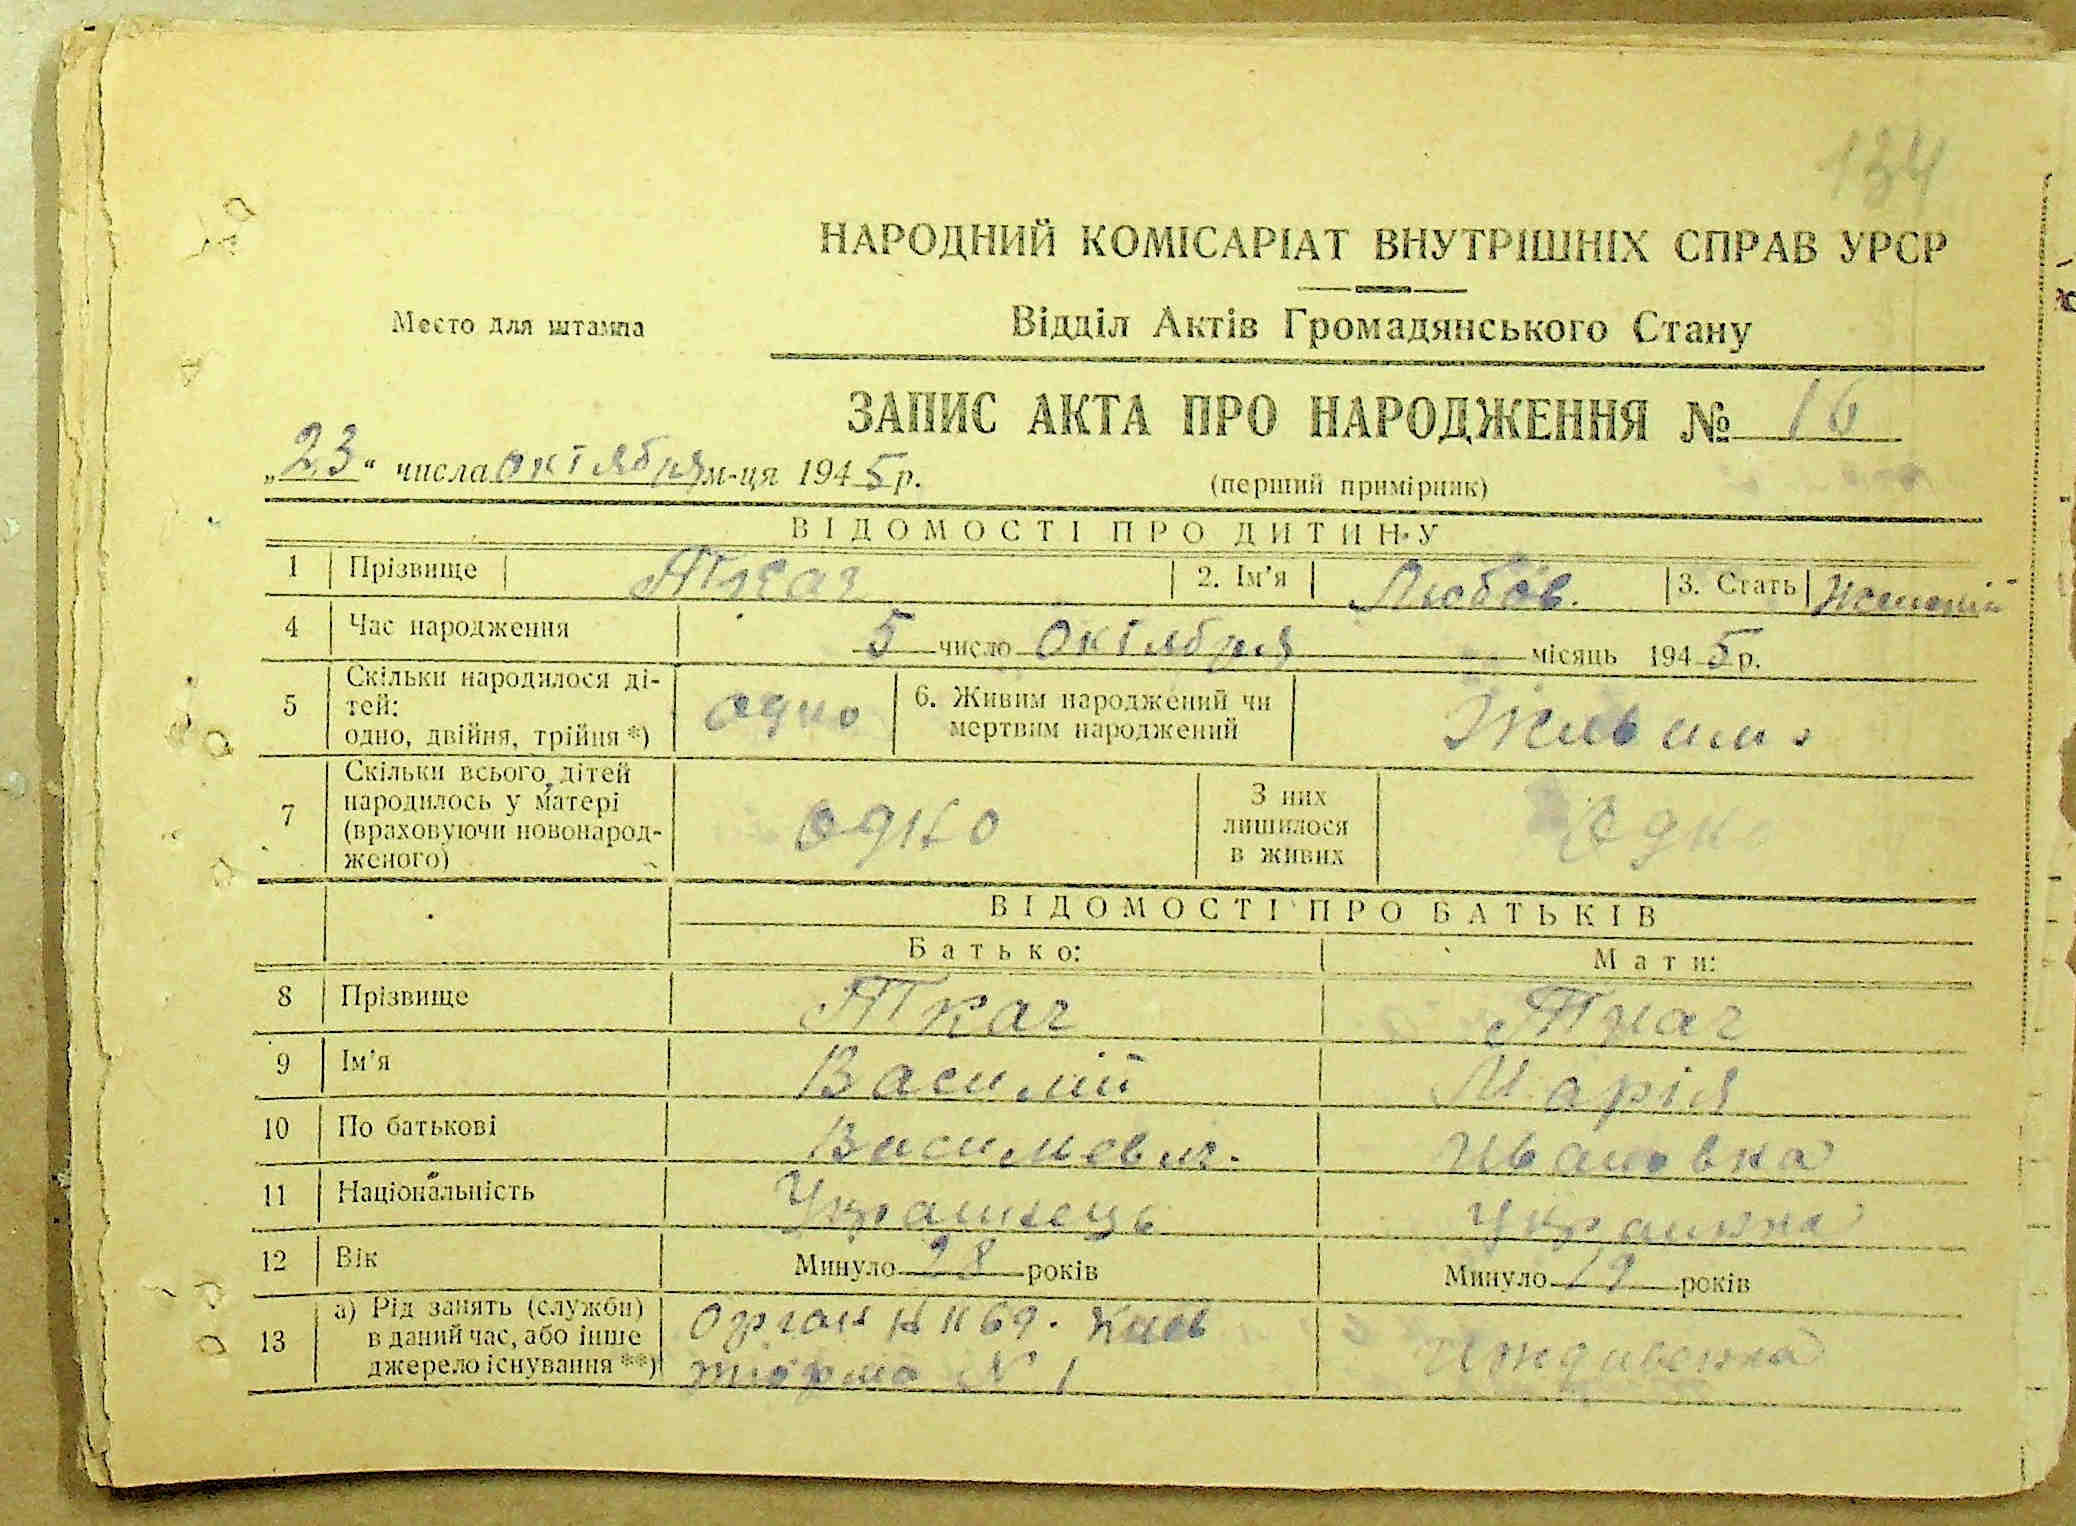 134
НАРОДНИЙ КОМІСАРІАТ ВНУТРІШНІХ СПРАВ УРСР
Место для штампа
Відділ Актів Громадянського Стану
ЗАПИС АКТА ПРО НАРОДЖЕННЯ № 16
„23“ числа октября м-ця 1945 р.
(перший примірник)
ВІДОМОСТІ ПРО ДИТИНУ
1 Прізвище Ткач 2. Ім'я Любов. 3. Стать
4 Час народження 5 число Октября місяць 1945 р.
5 Скільки народилося ді-
тей:
одно, двійня, трійня *) одно
6. Живим народжений чи
мертвим народжений Живим
7 Скільки всього дітей
народилось у матері
(враховуючи новонарод-
женого) одно
З них
лишилося
в живих одн
ВІДОМОСТІ ПРО БАТЬКІВ
Батько: Мати:
8 Прізвище Ткач Ткач
9 Ім'я Василий Марія
10 По батькові Васильевич. Ивановна
11 Національність Украинець Украинка
12 Вік Минуло 28 років Минуло 19 років
13 а) Рід занять (служби)
в даний час, або інше
джерело існування **)
Орган НКВД. Киев
тюрма N 1
Иждивенка